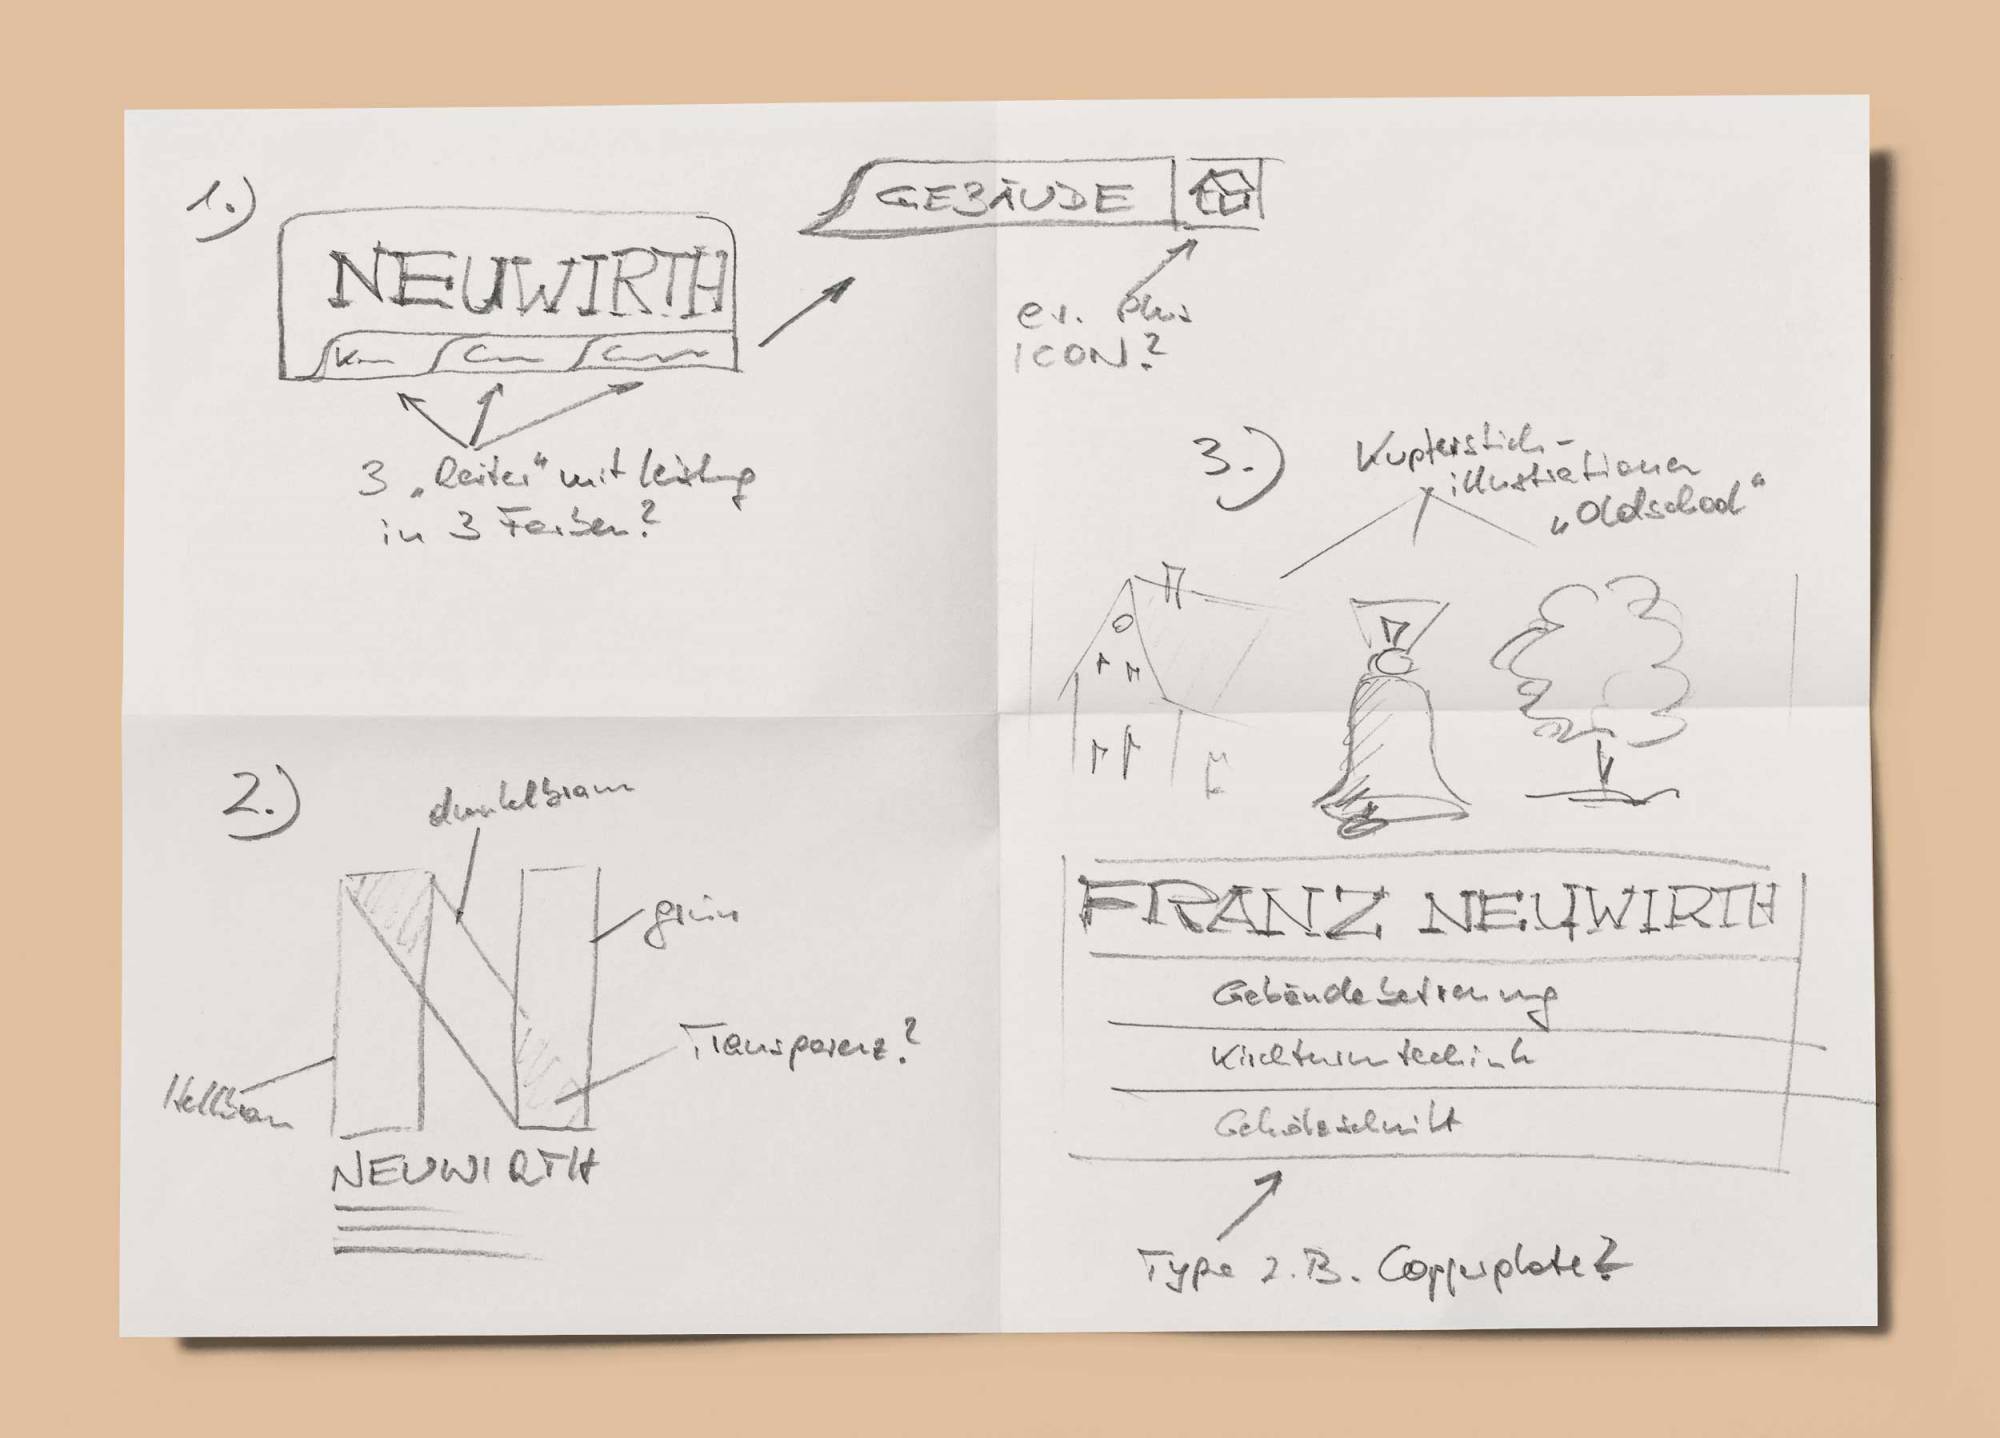 1.)
NEUWIRTH
3 „Reiter“ mit Leistung
in 3 Farben?
GEBÄUDE
ev. plus
ICON?
2.)
dunkelbraun
grün
Transparenz?
Hellbraun
NEUWIRTH
3.)
Kupferstich-
illustrationen
„Oldschool“
FRANZ NEUWIRTH
Gebäudebetreuung
Kirchturmtechnik
Gehölzschnitt
Type z.B. Copperplate?